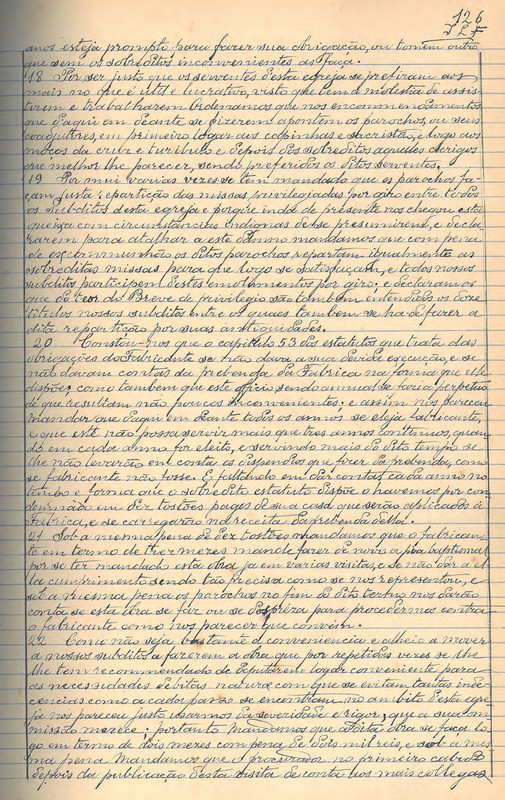 126
anos esteja prompto para fazer sua obrigação, ou tomem outro
que sem os sobreditos inconvenientes as faça.
18 Por ser justo que os serventes desta egreja se prefiram aos
mais no que é util e lucrativo, visto que tem a molestia de assis-
tirem e trabalharem Ordenamos que nos encommendamentos
que d'aqui em deante se fizerem apontem os parochos, ou seus
coadjutores, em primeiro logar aos capinhas e sacristão, e logo aos
moços da cruz e turibulo e depois dos sobreditos aquelles clerigos
que melhor lhe parecer, sendo preferidos os ditos serventes.
19 Por mui varias vezes se tem mandado que os parochos fa-
çam justa repartição das missas privilegiadas por giro entre todos
os subditos desta egreja e porque inda de presente nos chegou esta
queixa com circunstancias indignas de se presumirem, e decla-
rarem para atalhar a este damno mandamos que com pena
de excommunhão os ditos parochos repartam igualmente as
sobreditas missas para que logo se satisfaçam, e todos nossos
subditos participem destes emolumentos por giro; e declaramos
que do teor do Breve de privilegio são tambem entendidos os doze
titulos nossos subditos entre os quaes tambem se ha de fazer a
dita repartição por suas antiguidades.
20 Constou-nos que o capitulo 53 dos estatutos que trata das
obrigações do Fabricante se não dava a sua devida execução, e se
não davam contas da prebenda da Fabrica na forma que elle
dispõe, como tambem que este officio sendo annual se fazia perpetuo
de que resultam não poucos inconvenientes: e assim nos pareceu
Mandar que d'aqui em deante todos os annos se eleja fabricante,
e que este não possa servir mais que tres annos continuos, quan-
do em cada anno for eleito, e servindo mais do dito tempo se
lhe não levarão em conta os dispendios que fizer da prebenda, como
se fabricante não fosse. E faltando em dar contas cada anno no
tempo e forma que o sobredito estatuto dispõe o havemos por con-
demnado em dez tostões pagos de sua casa que serão applicados á
Fabrica, e se carregarão na receita da prebenda della.
21 Sob a mesma pena de dez tostões mandamos que o fabrican-
te em termo de tres mezes mande fazer de novo a pia baptismal
por se ter mandado esta obra ja em varias visitas, e se não dar a el-
la cumprimento sendo tão precisa como se nos representou, e
sob a mesma pena os parochos no fim do dito termo nos darão
conta se esta obra se faz ou se despreza para procedermos contra
o fabricante como nos parecer que convém.
22 Como não seja bastante a conveniencia e alheio a mover
a nossos subditos a fazerem a obra que por repetidas vezes se lhe
lhe tem recommendado de deputarem logar conveniente para
as necessidades debitas naturæ com que se evitam tantas inde-
cencias como a cada passo se encontram no ambito desta egre-
ja nos pareceu justo usarmos da severidade e rigor, que a sua om-
missão merece: portanto Mandamos que a dita obra se faça lo-
go em termo de dois mezes com pena de dois mil reis, e sob a mes-
ma pena Mandamos que o procurador no primeiro cabido
depois da publicação desta visita de conta aos mais collegas